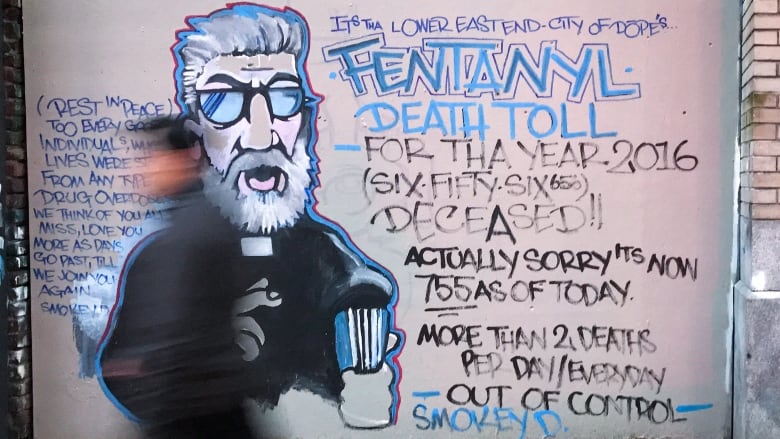 ITS THA LOWER EAST END-CITY OF DOPE'S...
FENTANYL
DEATH TOLL
FOR THA YEAR 2016
(SIX-FIFTY-SIX 656)
DECEASED!!
ACTUALLY SORRY ITS NOW
755 AS OF TODAY.
MORE THAN 2 DEATHS
PER DAY/EVERYDAY
OUT OF CONTROL
SMOKEY D.
(REST IN PEACE)
TOO EVERY
INDIVIDUALS,
LIVES WERE
FROM ANY TYPE
DRUG OVERDOSE
WE THINK OF YOU ALL
MISS, LOVE YOU
MORE AS DAYS
GO PAST, TILL
WE JOIN YOU
AGAIN
SMOKEY D.